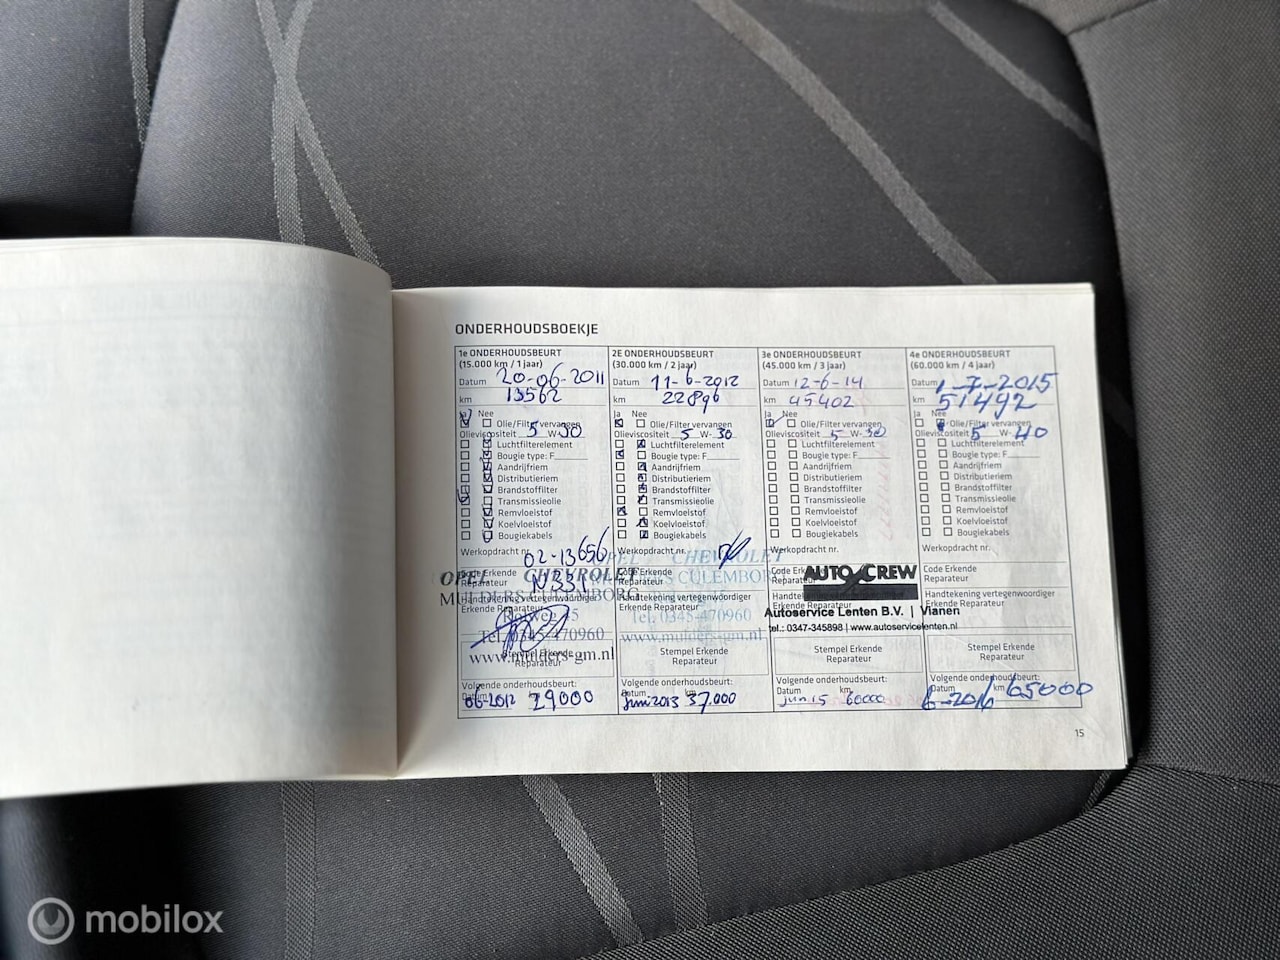 ONDERHOUDSBOEKJE
1e ONDERHOUDSBEURT
(15.000 km / 1 jaar)
Datum 20-06-2011
km 13562
Ja Nee
Olie/Filter vervangen
Olieviscositeit 5 W-30
Luchtfilterelement
Bougie type: F
Aandrijfriem
Distributieriem
Brandstoffilter
Transmissieolie
Remvloeistof
Koelvloeistof
Bougiekabels
Werkopdracht nr. 02-13656
Code Erkende
Reparateur
OPEL CHEVROLET
MULDERS CULEMBORG
Handtekening vertegenwoordiger
Erkende Reparateur
Tel. 0345-470960
www.mulders-gm.nl
Stempel Erkende
Reparateur
Volgende onderhoudsbeurt:
Datum km
06-2012 29000
2E ONDERHOUDSBEURT
(30.000 km / 2 jaar)
Datum 11-6-2012
km 22896
Ja Nee
Olie/Filter vervangen
Olieviscositeit 5 W-30
Luchtfilterelement
Bougie type: F
Aandrijfriem
Distributieriem
Brandstoffilter
Transmissieolie
Remvloeistof
Koelvloeistof
Bougiekabels
Werkopdracht nr.
OPEL CHEVROLET
Code Erkende
Reparateur
MULDERS CULEMBORG
Handtekening vertegenwoordiger
Erkende Reparateur
Tel. 0345-470960
www.mulders-gm.nl
Stempel Erkende
Reparateur
Volgende onderhoudsbeurt:
Datum km
juni 2013 37.000
3e ONDERHOUDSBEURT
(45.000 km / 3 jaar)
Datum 12-6-14
km 45402
Ja Nee
Olie/Filter vervangen
Olieviscositeit 5 W-30
Luchtfilterelement
Bougie type: F
Aandrijfriem
Distributieriem
Brandstoffilter
Transmissieolie
Remvloeistof
Koelvloeistof
Bougiekabels
Werkopdracht nr.
Code Erkende
Reparateur
AUTO CREW
Handtekening vertegenwoordiger
Erkende Reparateur
Autoservice Lenten B.V. | Vianen
tel.: 0347-345898 | www.autoservicelenten.nl
Stempel Erkende
Reparateur
Volgende onderhoudsbeurt:
Datum km
jun 15 60000
4e ONDERHOUDSBEURT
(60.000 km / 4 jaar)
Datum 1-7-2015
km 51492
Ja Nee
Olie/Filter vervangen
Olieviscositeit 5 W-40
Luchtfilterelement
Bougie type: F
Aandrijfriem
Distributieriem
Brandstoffilter
Transmissieolie
Remvloeistof
Koelvloeistof
Bougiekabels
Werkopdracht nr.
Code Erkende
Reparateur
Handtekening vertegenwoordiger
Erkende Reparateur
Stempel Erkende
Reparateur
Volgende onderhoudsbeurt:
Datum km
6-2016 65000
15
mobilox